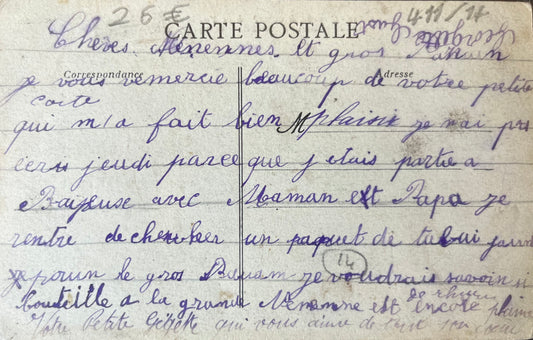 26 €
CARTE POSTALE
411/14
Chères Mènennes et gros
Correspondance
Adresse
je vous remercie beaucoup de votre petite
carte
qui m'a fait bien plaisir je n'ai pas
jeudi parce que j etais partie a
Bayeuse avec Maman et Papa je
rentre de chercher un paquet de jaune
14
pour le gros je voudrais savoir si
bouteille a la grande Menenne est encore pleine
de rhum
Votre Petite qui vous aime de tout son cœur